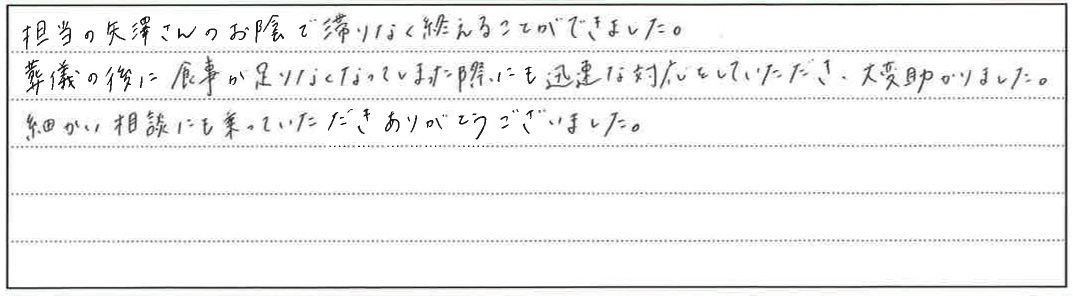 担当の矢澤さんのお陰で滞りなく終えることができました。
葬儀の後に食事が足りなくなってしまった際にも迅速な対応をしていただき、大変助かりました。
細かい相談にも乗っていただきありがとうございました。